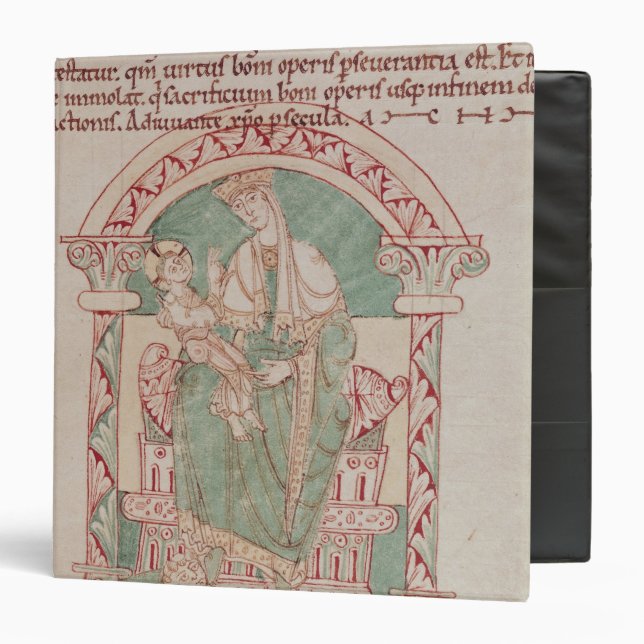 testatur. qm̄ virtus boni operis pseverantia est. Et
immolat. q̇ sacrificium boni operis usq; infinem de
actionis. Adiuvante xp̄o psecula. A C H